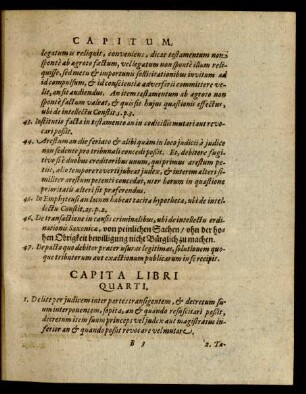 CAPITUM.
legatum is reliquit, conveniens, dicat testamentum non
spontè ab agroto factum, vel legatum non spontè illum reli-
quisse, sed metu & importunis sollicitationibus invitum ad
id compulsum, & id conscientia adversarii committere ve-
lit, an sit audiendus. An item testamentum ab agroto non
spontè factum valeat, & quis sit hujus quæstionis effectus,
ubi de intellectu Constit.
43. Institutio facta in testamento an in codicillis mutari aut re-
vocari possit.
44. Arrestum an die feriato & alibi quàm in loco judicii à judice
non sedente pro tribunali concedi possit. Et, debitore fugiti-
vo si è duobus creditoribus unum, qui primus arrestum pe-
tiit, alio tempore verti jubeat judex, & interim alteri si-
militer arrestum petenti concedat, uter horum in quæstione
prioritatis alteri sit præferendus.
45. In Emphyteusi an locum habeat tacita hypotheca, ubi de in-
tellectu Constit. 25. p. 2.
46. De transactione in causis criminalibus, ubi de intellectu ordi-
nationis Saxonicæ, von peinlichen Sachen / ohn der ho-
hen Obrigkeit bewilligung nicht Bürglich zu machen.
47. De pacto quo debitor præter usuras legitimas, solutionem quo-
que tributorum aut exactionum publicarum in se recipit.
CAPITA LIBRI
QUARTI.
1. De lite per judicem inter partes transigentem, & decretum su-
um interponentem, sopita, an & quando resuscitari possit,
decretum item suum princeps vel judex aut magistratus in-
ferior an & quando possit revocare vel mutare.
B 3 2. Ta-